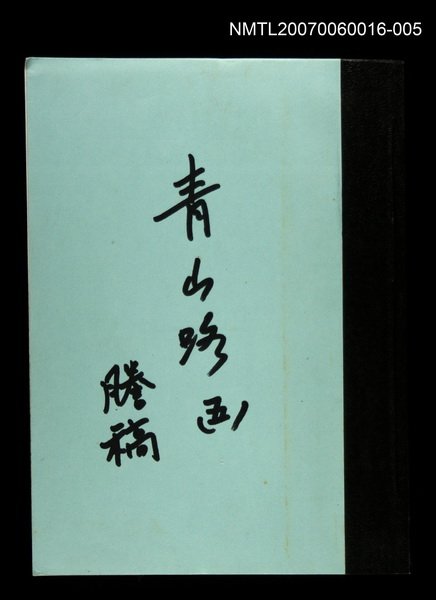 NMTL20070060016-005
青山路(五)
謄稿